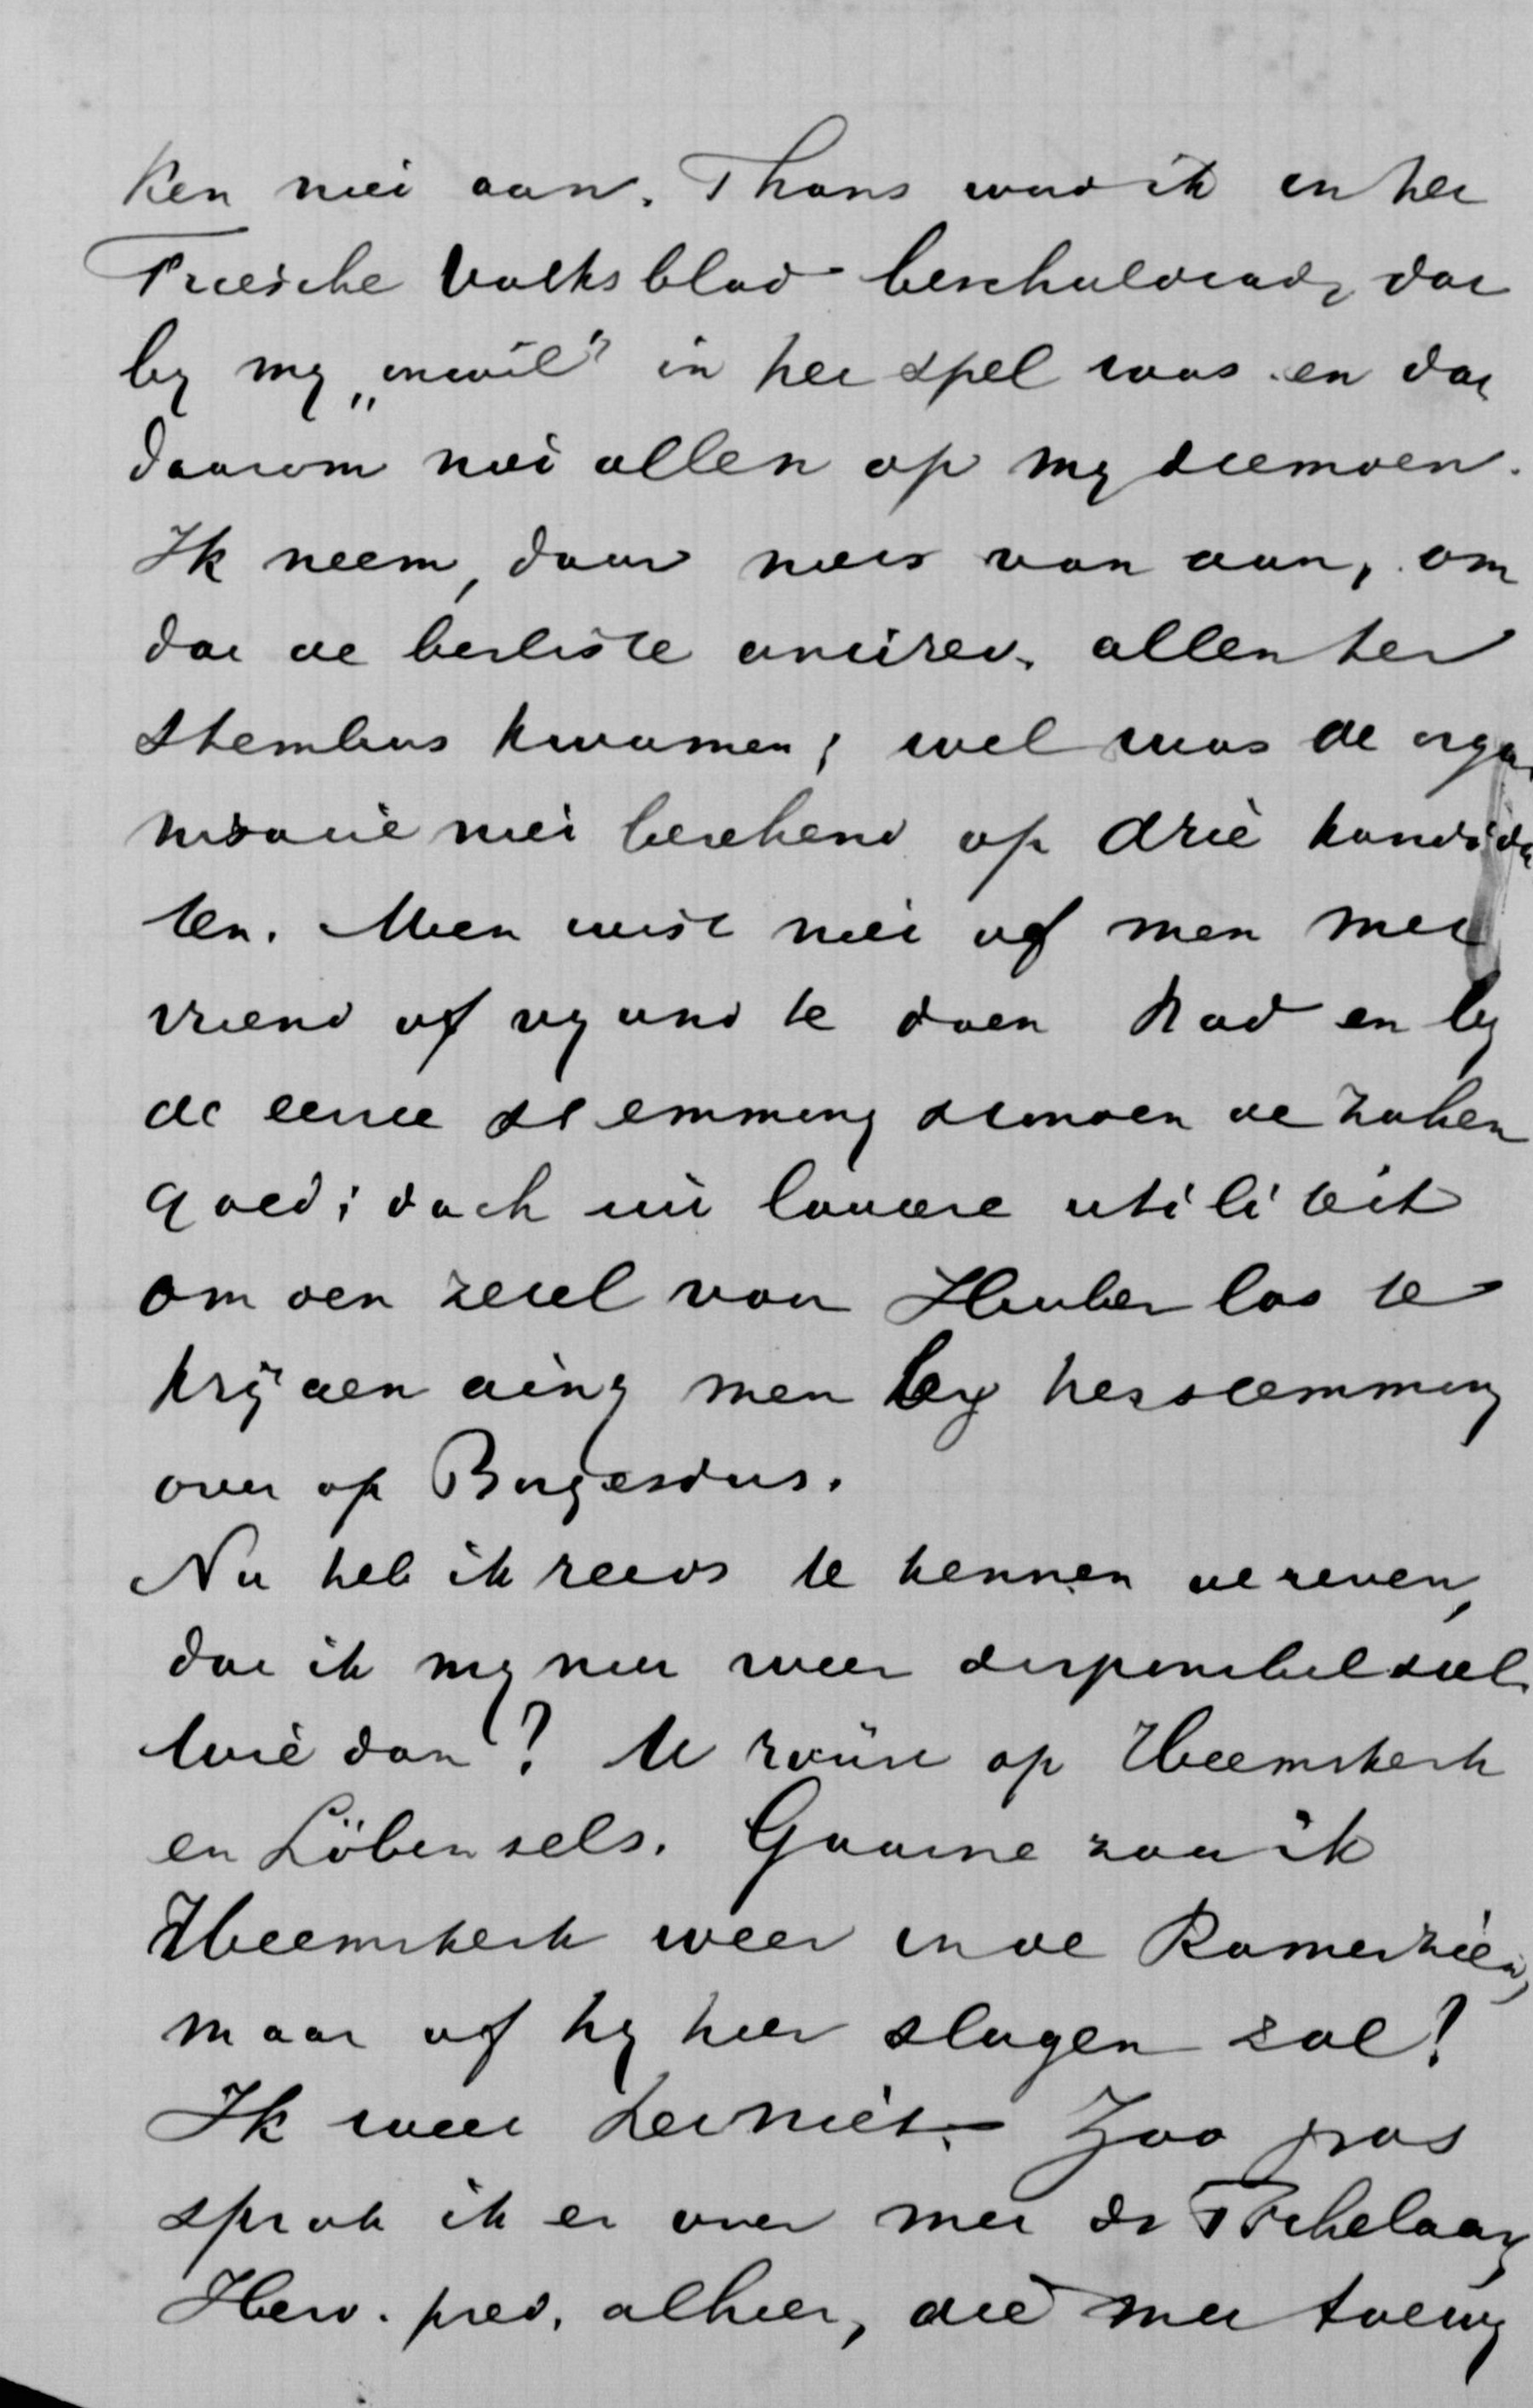 ken niet aan. Thans word ik in het
Friesche Volksblad beschuldigd, dat
by my „onwil" in het spel was en dat
daarom niet allen op my stemden.
Ik neem, daar niets van aan, om
dat de besliste antirev. allen ter
stembus kwamen; wel was de orga
nisatie niet berekend op drie kandida
ten. Men wist niet of men met
vriend of vyand te doen had en by
de eerste stemming stonden de zaken
goed; doch uit louter utiliteit
om den zetel van Huber los te
krijgen ging men by herstemming
over op Bergesius.
Nu heb ik reeds te kennen gegeven,
dat ik my niet weer disponibel stel.
Wie dan? U wijst op Heemskerk
en Löben sels. Gaarne zou ik
Heemskerk weer in de Kamer zien,
maar of hy hier slagen zal!
Ik weet het niet. Zoo pas
sprak ik er over met ds
Herv. pred. alhier, die met